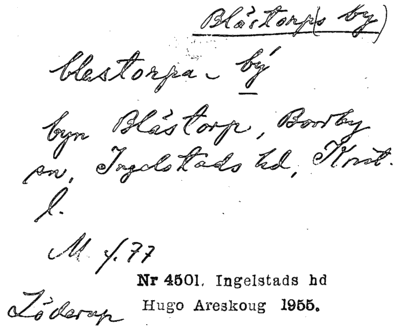 Blåstorp(s by)
blestorpa - bý
byn Blåstorp, Borrby
sn, Ingelstads hd, Krist.
l.
M f. 77
Nr 4501. Ingelstads hd
Löderup Hugo Areskoug 1955.